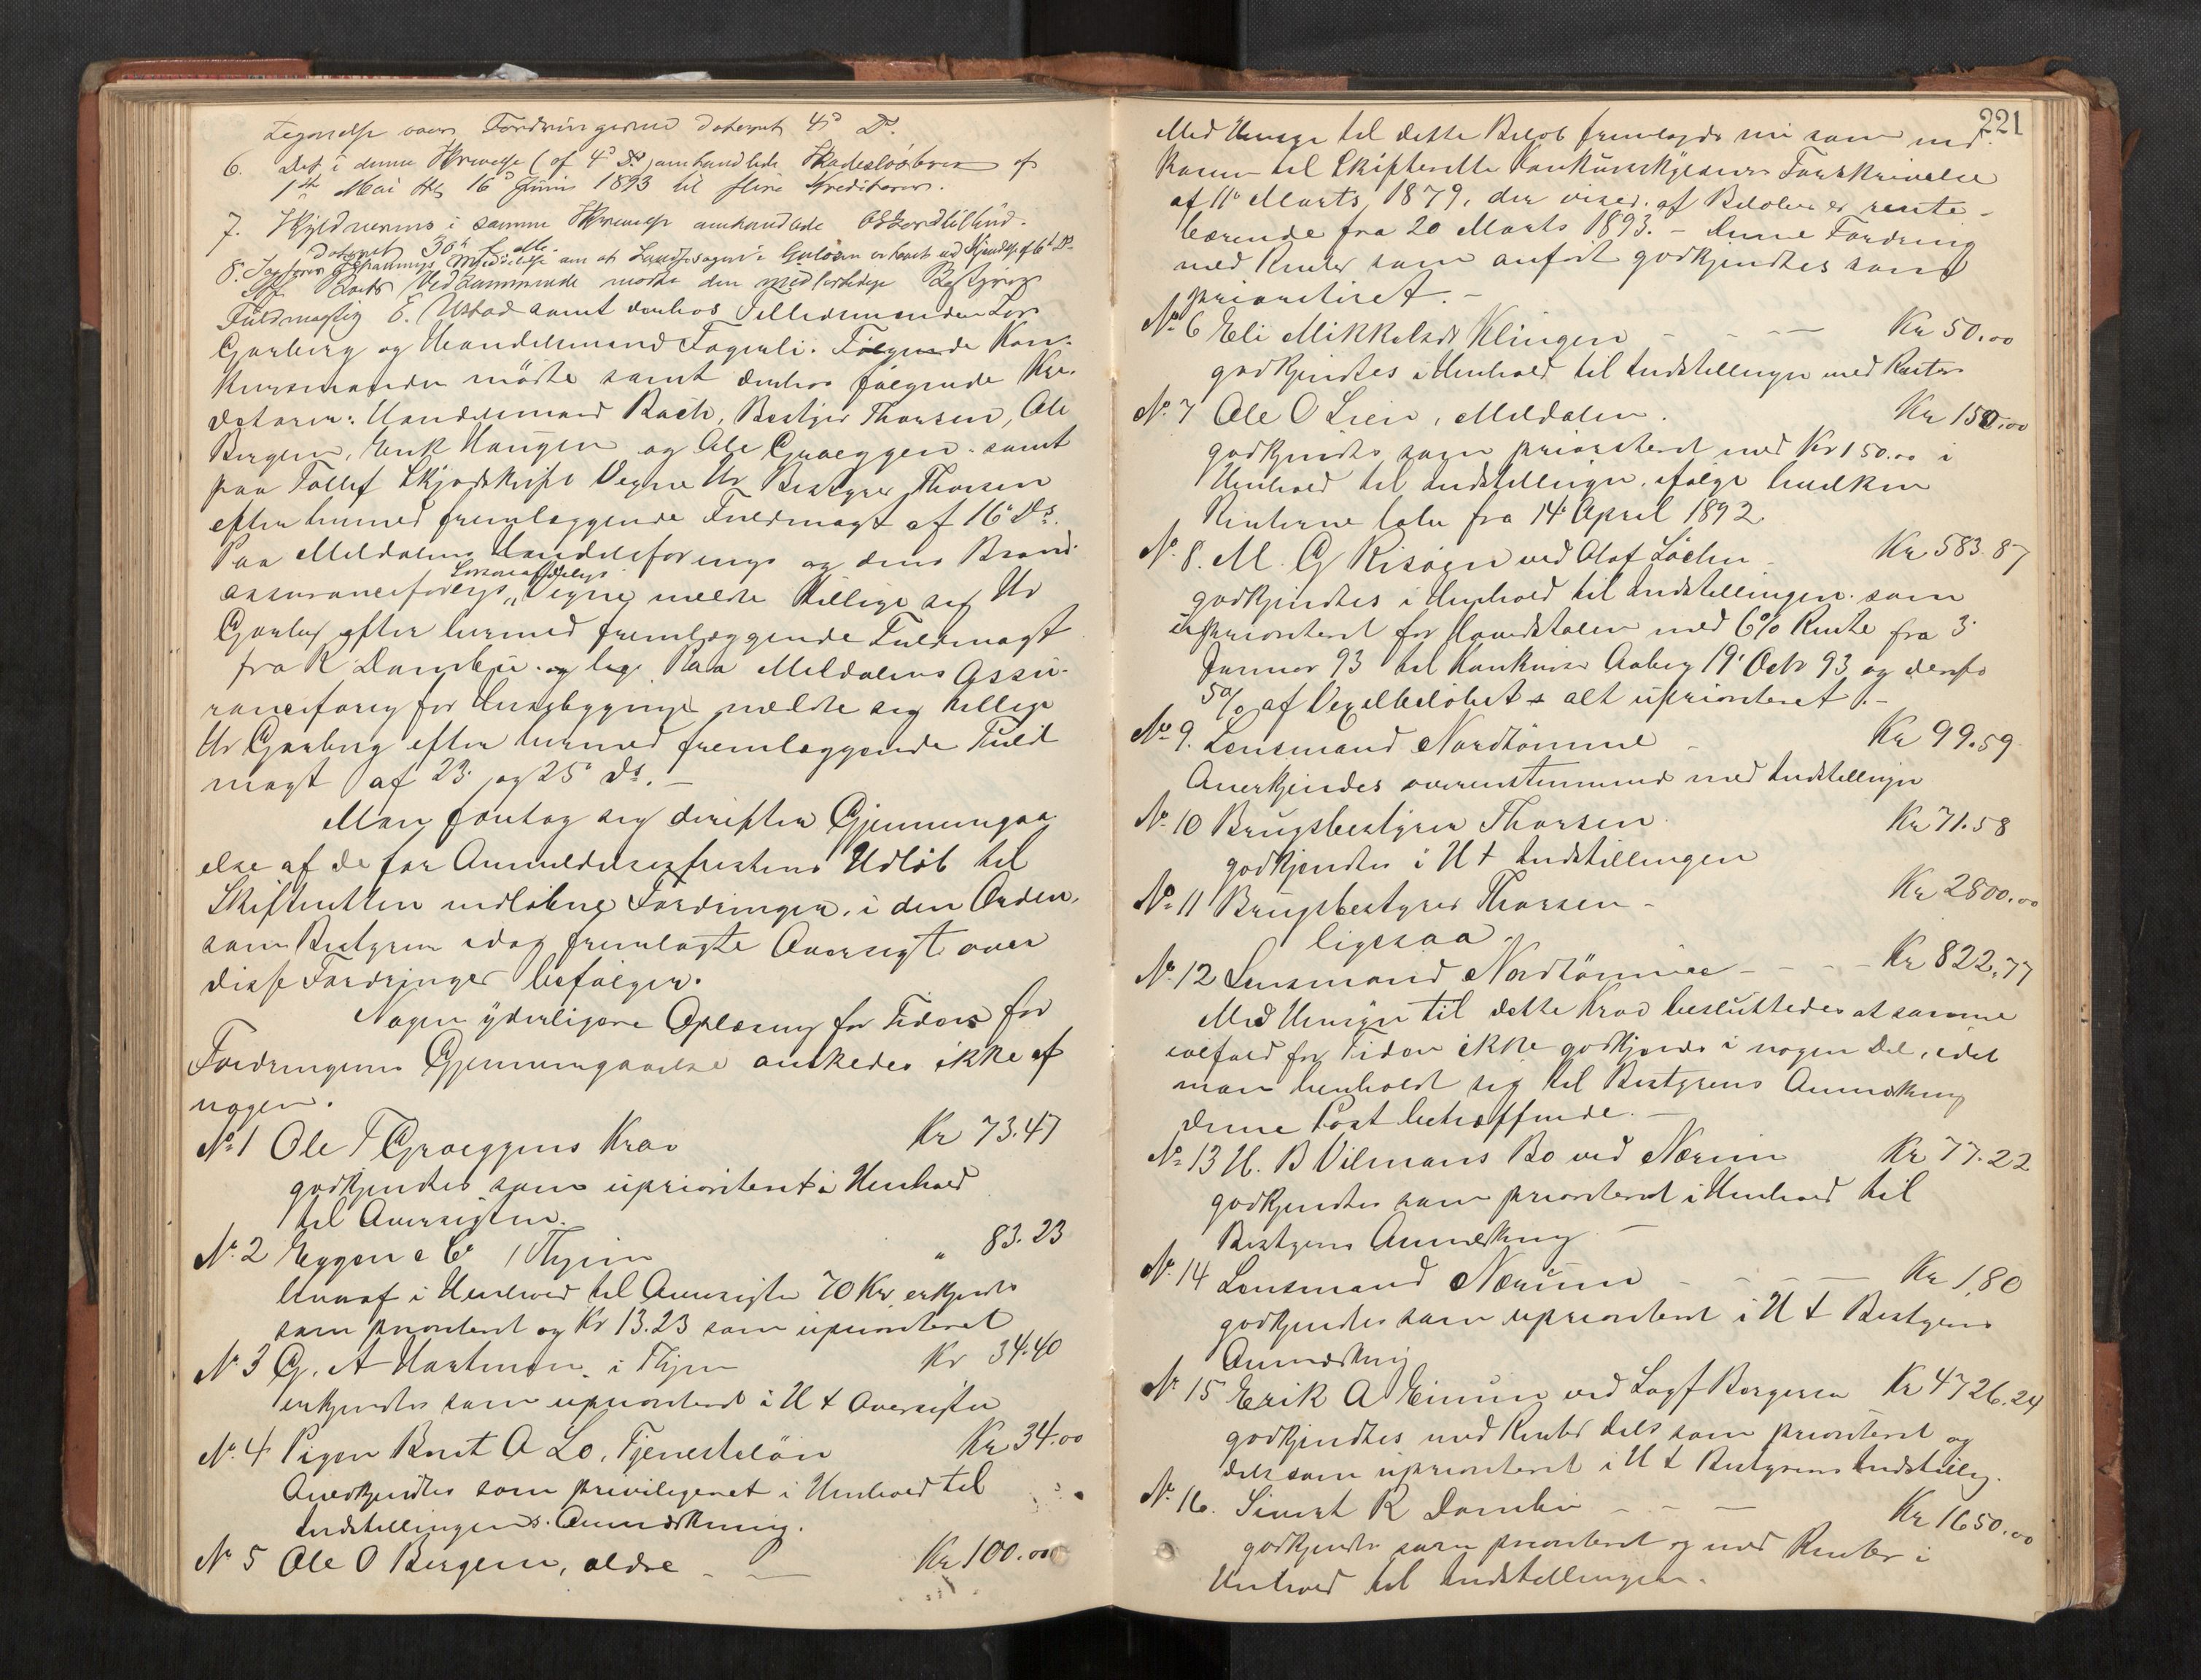 Fordringerne dateret 4de Ds.
6. Det i denne Skrivelse (af 4de Ds) omhandlede Skadesløsbrev af
1ste Mai 16de Juni 1893 til flere Kreditorer.
7. Skyldnerens i samme Skrivelse omhandlede Akkordtilbud
dateret 30te
8. Sagfører om at i Guldsen er hævet ved Kjendelse af 6te Ds.
Ved Sammende mødte den midlertidige Bestyrer
Fuldmægtig E. Ustad samt denhos Tillidsmændene Lars
Garberg og Handelsmand Fagerli. Følgende Kon-
kursmænden mødte samt denhos følgende Kre-
ditorer: Handelsmand Bach, Bestyrer Thorsen, Ole
Bergem, Erik Haugen og Ole Græggen. samt
paa Tollef Skjødskifts Vegne Hr Bestyrer Thorsen
efter hermed fremlæggende Fuldmagt af 16de Ds.
Paa Meldalens Handelsforenings og dens Brand-
assuranceforenings „ Vegne meldte tillige sig Hr
Garberg efter hermed fremlæggende Fuldmagt
fra R Dombu. og lige Paa Meldalens Assu-
ranceforeng for Husebygninge meldte sig tillige
Hr Garberg efter hermed fremlæggende Fuld
magt af 23de og 25de Ds. –
Man foretog sig derefter Gjennemgaa
else af de før Anmeldelsesfristens Udløb til
Skifteretten indløbne Fordringer, i den Orden,
som Bestyrerens idag fremlagte Oversigt over
disse Fordringer befølger.
Nogen yderligere Oplæsning før Tiden for
Fordringernes Gjennemgaaelse ønskedes ikke af
nogen.
No 1 Ole T Græggens Krav Kr 73.47
godkjendtes som uprioriteret i Henhold
til Oversigten.
No 2 Eggen & Co, Thjem „ 83.23
hvoraf i Henhold til Oversigten 70 Kr erkjendtes
som prioriteret og Kr 13.23 som uprioriteret
No 3 G. A Hartman i Thjem Kr 34.40
erkjendtes som uprioriteret i H t Oversigten
No 4 Pigen Beret A Lo, Tjenesteløn Kr 34.00
Anerkjendtes som privilegeret i Henhold til
Indstillingens Anmærkning.
No 5 Ole O Bergem, ældre Kr 100.00
221
Med Hensyn til dette Beløb fremlagdes nu som ind
kommen til Skifteretten Konkursskyldnerens Forskrivelse
af 11te Marts 1879, der viser, at Beløbet er rente-
bærende fra 20 Marts 1893. – Denne Fordring
med Renter som anført godkjendtes som
prioriteret. –
No 6 Eli Mikkelsdr Klingen Kr 50.00
godkjendtes i Henhold til Indstillingen med Renter
No 7 Ole O Lien, Meldalen. Kr 150.00
godkjendtes som prioriteret med Kr 150.00 i
Henhold til Indstillingen, ifølge hvilken
Renterne løber fra 14de April 1892.
No 8. M. G Risøen ved Olaf Löchen Kr 583.87
godkjendtes i Henhold til Indstillingen som
uprioriteret for Hovedstolen med 6% Rente fra 3
Januar 93 til Konkursens Aabng 19de Octr 93 og derfra
5% af Vexelbeløbet – alt uprioriteret. –
No 9. Lensmand Nordtømme Kr 99.59
Anerkjendes overensstemmende med Indstillingen
No 10 Brugsbestyrer Thorsen Kr 71.58
godkjendtes i H t Indstillingen
No 11 Brugsbestyrer Thorsen – Kr 2800.00
ligesaa.
No 12 Lensmand Nordtømme – – – Kr 822.77
Med Hensyn til dette Krav besluttedes at samme
ialfald for Tiden ikke godkjendes i nogen Del, idet
man henholdt sig til Bestyrerens Anmærkning
denne Post betræffende. –
No 13 H. B Vilmans Bo ved Nærum Kr 77.22
godkjendtes som prioriteret i Henhold til
Bestyrerens Anmerkning –
No 14 Lensmand Nærum – – – Kr 1,80
godkjendtes som uprioriteret i H t Bestyrerens
Anmærkning
No 15 Erik A Einum ved Sagf Borgersen Kr 4726.24
godkjendtes med Renter dels som prioriteret og
dels som uprioriteret i H t Bestyrerens Indstilling.
No 16. Sivert R Dombu – – – Kr 1650.00
godkjendtes som prioriteret og med Renter i
Henhold til Indstillingen.